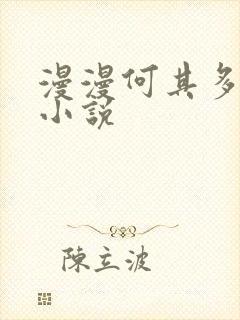 漫漫何其多
小説
陳立波